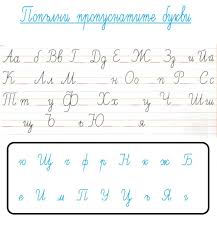 Попълни пропуснатите букви
Аа б Вв Г Дд Е Ж Зз и Йй
К Лл М н Оо п Р Сс
Т т у Ф Хх ц Ч Шш
щ Ъ ь Ю я
ю Щ ч ф р Н к ж Б
е И м П У Ц ъ Я г